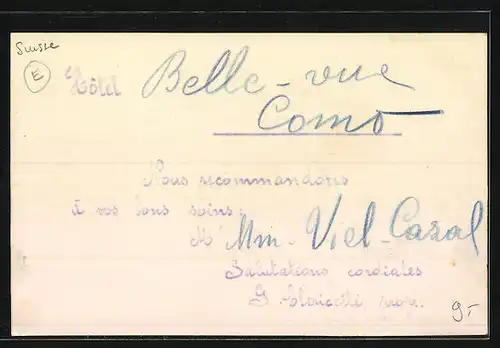 Suisse
E
Hôtel Belle-vue
Como
Nous recommandons
à vos bons soins:
M Mm. Viel-Cazal
Salutations cordiales
9.-